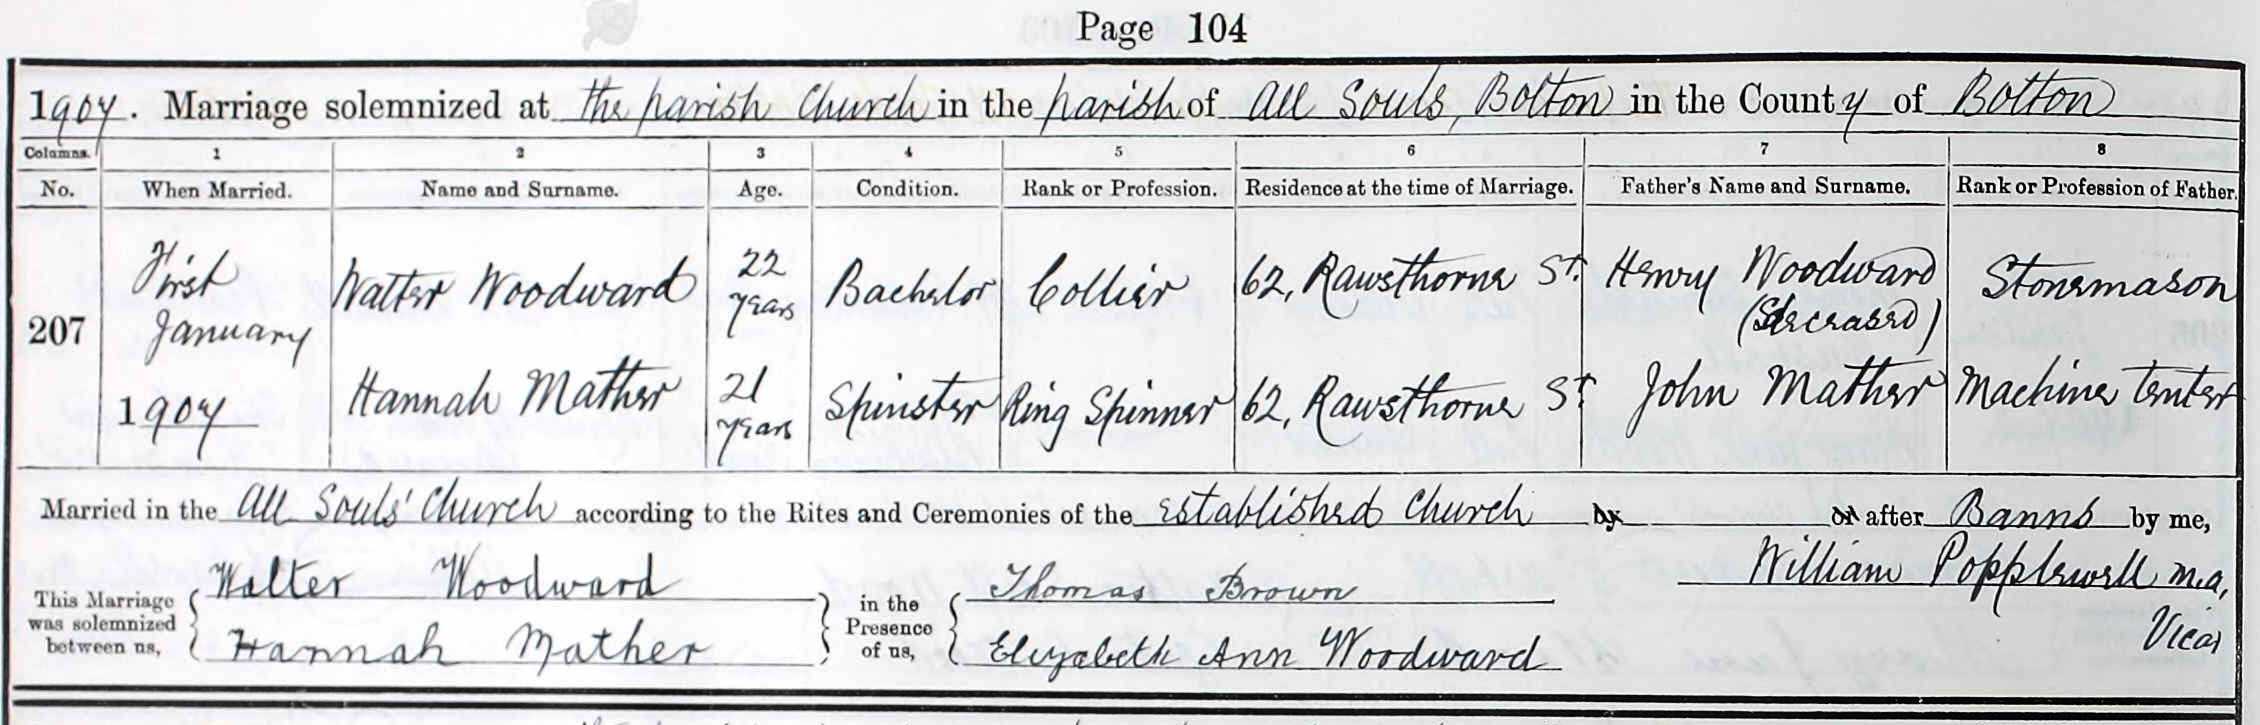 Page 104
1904. Marriage solemnized at the parish Church in the parish of All Souls, Bolton in the County of Bolton
Columns. 1 2 3 4 5 6 7 8
No. When Married. Name and Surname. Age. Condition. Rank or Profession. Residence at the time of Marriage. Father's Name and Surname. Rank or Profession of Father.
207 First January 1904 Walter Woodward 22 years Bachelor Collier 62, Rawsthorne St. Henry Woodward (Deceased) Stonemason
Hannah Mather 21 years Spinster Ring Spinner 62, Rawsthorne St John Mather Machine tenter
Married in the All Souls' Church according to the Rites and Ceremonies of the Established Church by or after Banns by me,
William Popplewell M.A,
Vicar
This Marriage was solemnized between us, Walter Woodward
Hannah Mather
in the Presence of us, Thomas Brown
Elizabeth Ann Woodward